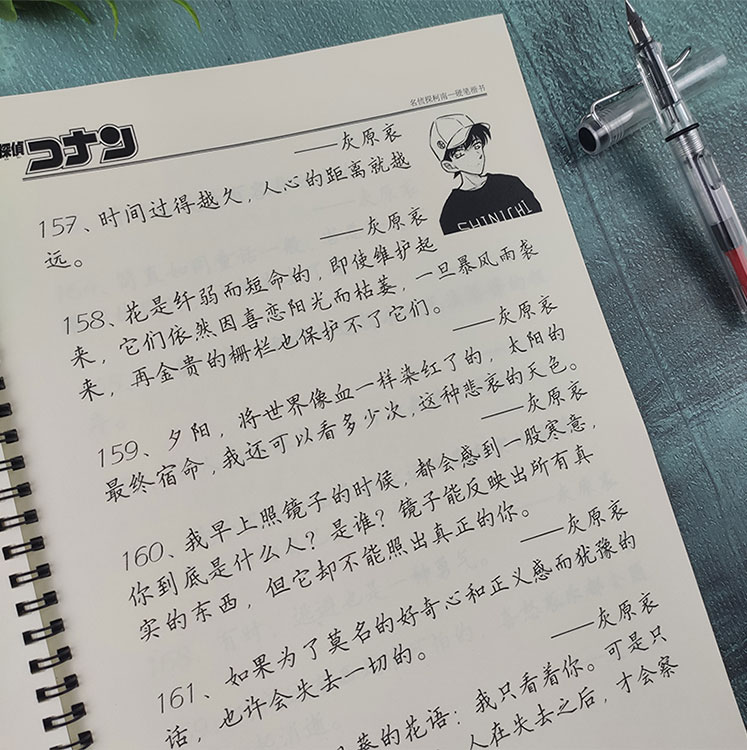 名侦探柯南一硬笔楷书
探偵
コナン
——灰原哀
157、时间过得越久，人心的距离就越
远。
——灰原哀
158、花是纤弱而短命的，即使维护起
来，它们依然因喜恋阳光而枯萎，一旦暴风雨袭
来，再金贵的栅栏也保护不了它们。
——灰原哀
159、夕阳，将世界像血一样染红了的，太阳的
最终宿命，我还可以看多少次，这种悲哀的天色。
——灰原哀
160、我早上照镜子的时候，都会感到一股寒意，
你到底是什么人？是谁？镜子能反映出所有真
实的东西，但它却不能照出真正的你。
——灰原哀
161、如果为了莫名的好奇心和正义感而犹豫的
话，也许会失去一切的。
——灰原哀
的花语：我只看着你。可是只
人在失去之后，才会察
SHINICHI